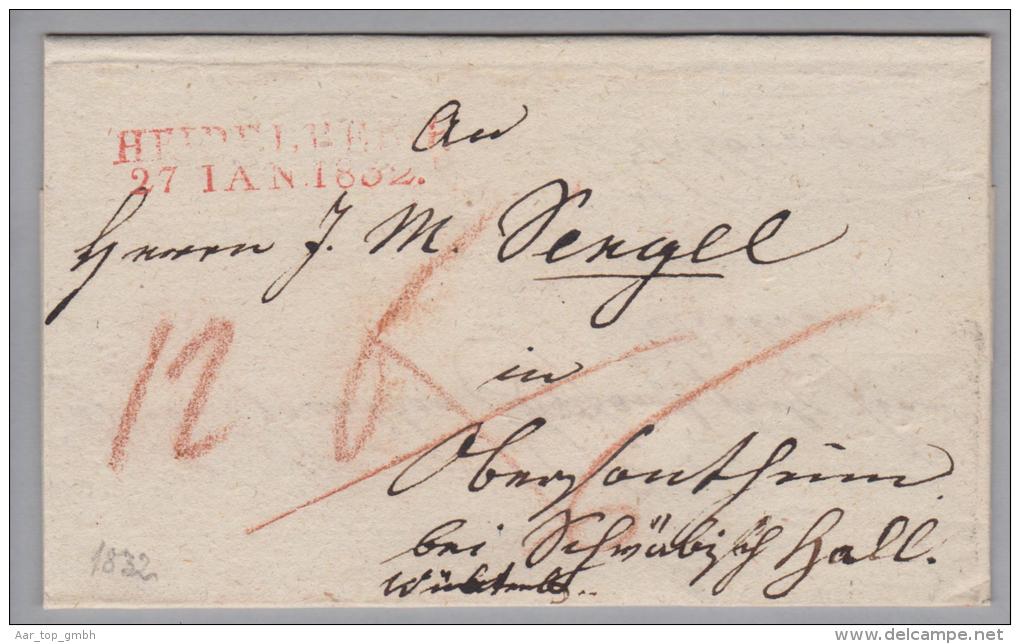 An
HEIDELBERG
27 IAN.1832.
Herrn J. M. Sengel
12 6
in
Obersontheim
bei Schwäbisch Hall.
1832
Aar_top_gmbh
http://www.delcampe.net